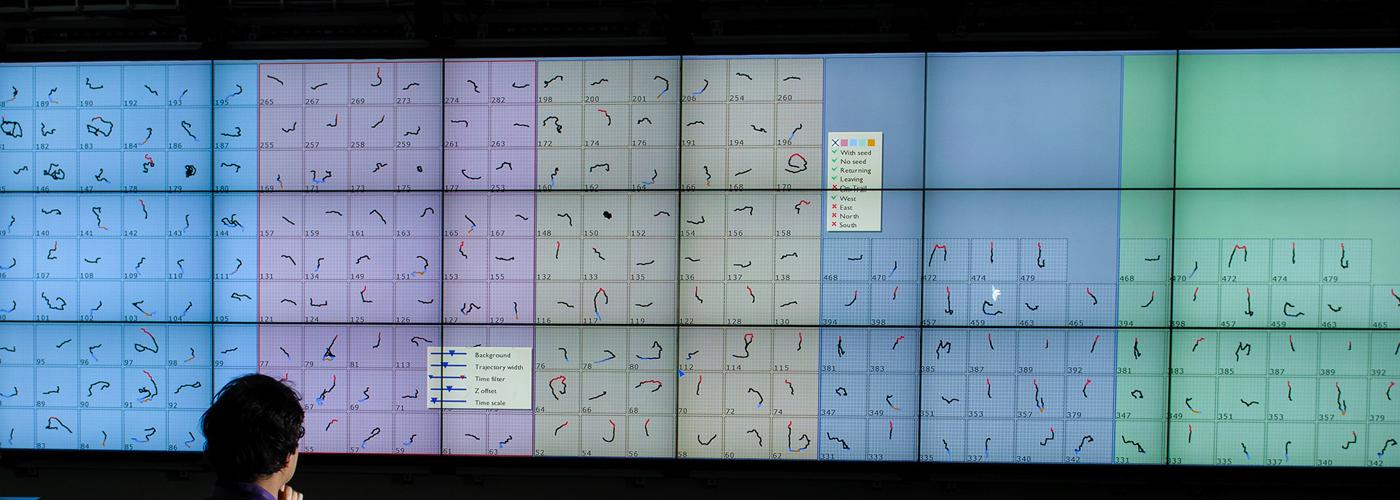 189 190 192 193 195 265 267 269 273 274 282 198 200 201 206 254 260
181 182 183 184 186 187 255 257 258 259 261 263 172 174 176 191 194 196
146 147 178 179 180 169 171 173 175 177 253 160 162 164 166 168 170
With seed
No seed
Returning
Leaving
On-Trail
West
East
North
South
140 141 142 143 144 157 159 161 163 165 167 148 150 152 154 156 158
107 108 109 110 111 131 134 149 151 153 155 132 133 135 136 137 138 468 470 472 474 479 468 470 472 474 479
101 102 103 104 105 121 124 125 126 127 129 116 117 119 122 128 130 394 398 457 459 463 465 394 398 457 459 463 465
95 96 97 98 99 77 79 81 113 76 78 80 112 114 115 381 383 385 387 389 392 381 383 385 387 389 392
Background
Trajectory width
Time filter
Z offset
Time scale
89 90 91 92 67 69 71 64 66 68 70 72 74 347 349 351 353 357 379 347 349 351 353 357 379
83 84 85 86 55 57 59 61 63 52 54 56 58 60 62 331 333 335 337 340 342 331 333 335 337 340 342